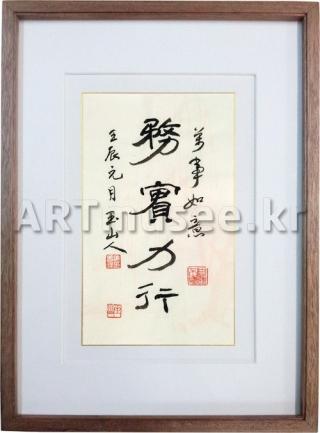 萬事如意
務實力行
壬辰元月玉山人
ARTmusee.kr